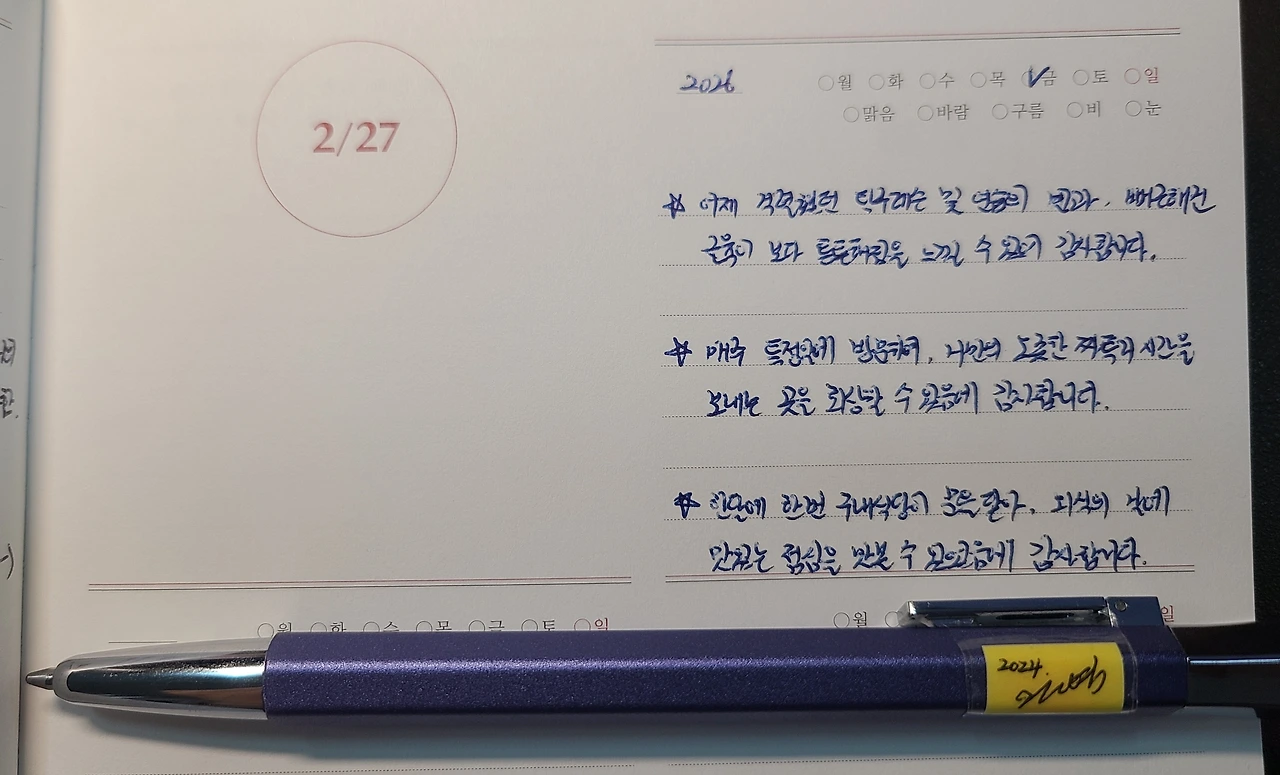 2/27
2026
월 화 수 목 금 토 일
맑음 바람 구름 비 눈
☆ 어제 했던 및 연습의 뻐근해진
근육이 보다 튼튼해짐을 느낄 수 있기 감사합니다.
☆ 매주 특정일에 방문하여, 나만의 오롯한 시간을
보내는 곳을 수 있음에 감사합니다.
☆ 한달에 한번 구내식당이 문을 닫아, 외식의 날에
맛있는 점심을 맛볼 수 감사합니다.
월 화 수 목 금 토 일
월 일
2024.